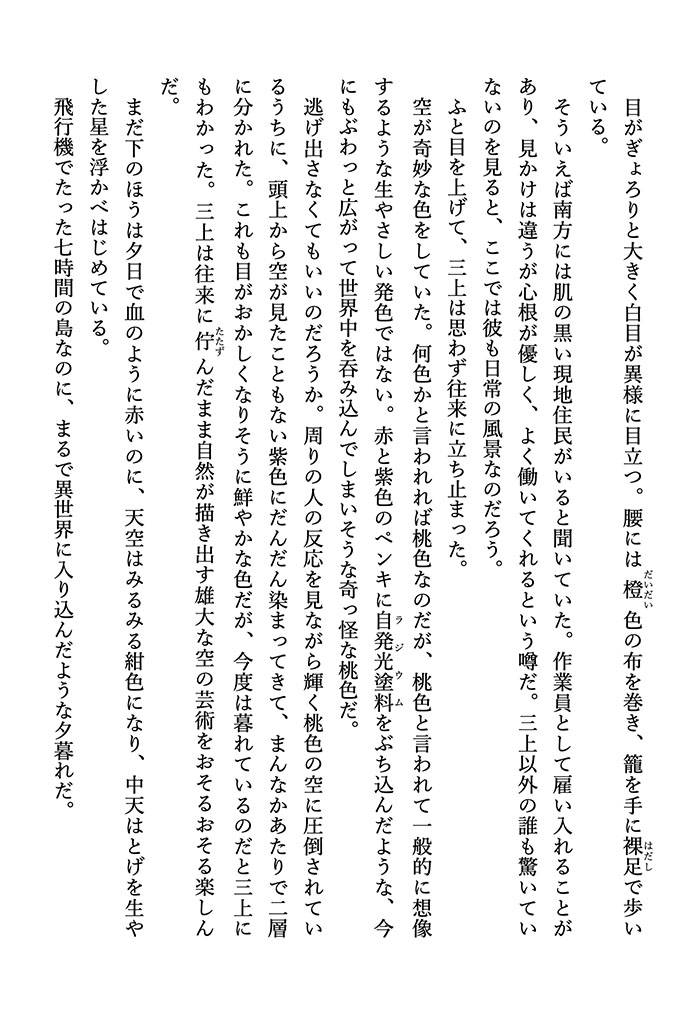 目がぎょろりと大きく白目が異様に目立つ。腰には橙色の布を巻き、籠を手に裸足で歩い
ている。
そういえば南方には肌の黒い現地住民がいると聞いていた。作業員として雇い入れることが
あり、見かけは違うが心根が優しく、よく働いてくれるという噂だ。三上以外の誰も驚いてい
ないのを見ると、ここでは彼も日常の風景なのだろう。
ふと目を上げて、三上は思わず往来に立ち止まった。
空が奇妙な色をしていた。何色かと言われれば桃色なのだが、桃色と言われて一般的に想像
するような生やさしい発色ではない。赤と紫色のペンキに自発光塗料をぶち込んだような、今
にもぶわっと広がって世界中を呑み込んでしまいそうな奇っ怪な桃色だ。
逃げ出さなくてもいいのだろうか。周りの人の反応を見ながら輝く桃色の空に圧倒されてい
るうちに、頭上から空が見たこともない紫色にだんだん染まってきて、まんなかあたりで二層
に分かれた。これも目がおかしくなりそうに鮮やかな色だが、今度は暮れているのだと三上に
もわかった。三上は往来に佇んだまま自然が描き出す雄大な空の芸術をおそるおそる楽しん
だ。
まだ下のほうは夕日で血のように赤いのに、天空はみるみる紺色になり、中天はとげを生や
した星を浮かべはじめている。
飛行機でたった七時間の島なのに、まるで異世界に入り込んだような夕暮れだ。
だいだい
はだし
ラジウム
たたず